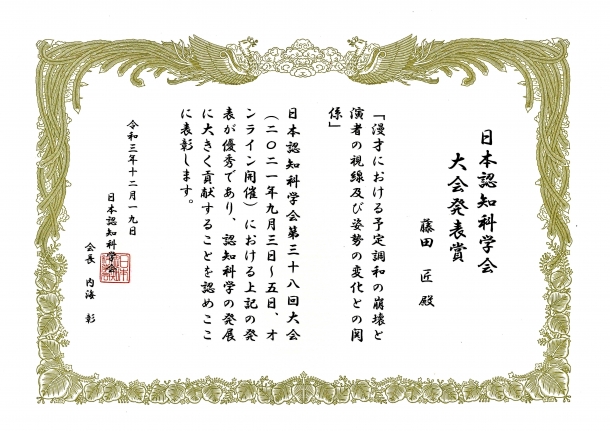 日本認知科学会
大会発表賞
藤田 匠 殿
「漫才における予定調和の崩壊と
演者の視線及び姿勢の変化との関
係」
日本認知科学会第三十八回大会
(二〇二一年九月三日~五日、オ
ンライン開催)における上記の発
表が優秀であり、認知科学の発展
に大きく貢献することを認めここ
に表彰します。
令和三年十二月一九日
日本認知科学会
会長 内海 彰